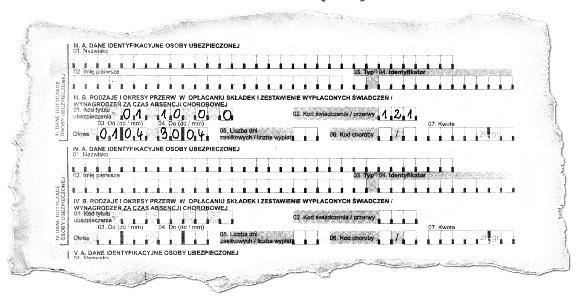 III. A. DANE IDENTYFIKACYJNE OSOBY UBEZPIECZONEJ
01. Nazwisko
02. Imię pierwsze 03. Typ 04. Identyfikator
III. B. RODZAJE I OKRESY PRZERW W OPŁACANIU SKŁADEK I ZESTAWIENIE WYPŁACONYCH ŚWIADCZEŃ /
WYNAGRODZEŃ ZA CZAS ABSENCJI CHOROBOWEJ
01. Kod tytułu
ubezpieczenia 01 10 0 0 02. Kod świadczenia / przerwy 121
03. Od (dd / mm) 04. Do (dd / mm) 05. Liczba dni 07. Kwota
Okres 01 04 30 04 zasiłkowych / liczba wypłat 06. Kod choroby /
IV. A. DANE IDENTYFIKACYJNE OSOBY UBEZPIECZONEJ
01. Nazwisko
02. Imię pierwsze 03. Typ 04. Identyfikator
IV. B. RODZAJE I OKRESY PRZERW W OPŁACANIU SKŁADEK I ZESTAWIENIE WYPŁACONYCH ŚWIADCZEŃ /
WYNAGRODZEŃ ZA CZAS ABSENCJI CHOROBOWEJ
01. Kod tytułu
ubezpieczenia 02. Kod świadczenia / przerwy
03. Od (dd / mm) 04. Do (dd / mm) 05. Liczba dni 07. Kwota
Okres zasiłkowych / liczba wypłat 06. Kod choroby /
V. A. DANE IDENTYFIKACYJNE OSOBY UBEZPIECZONEJ
01. Nazwisko